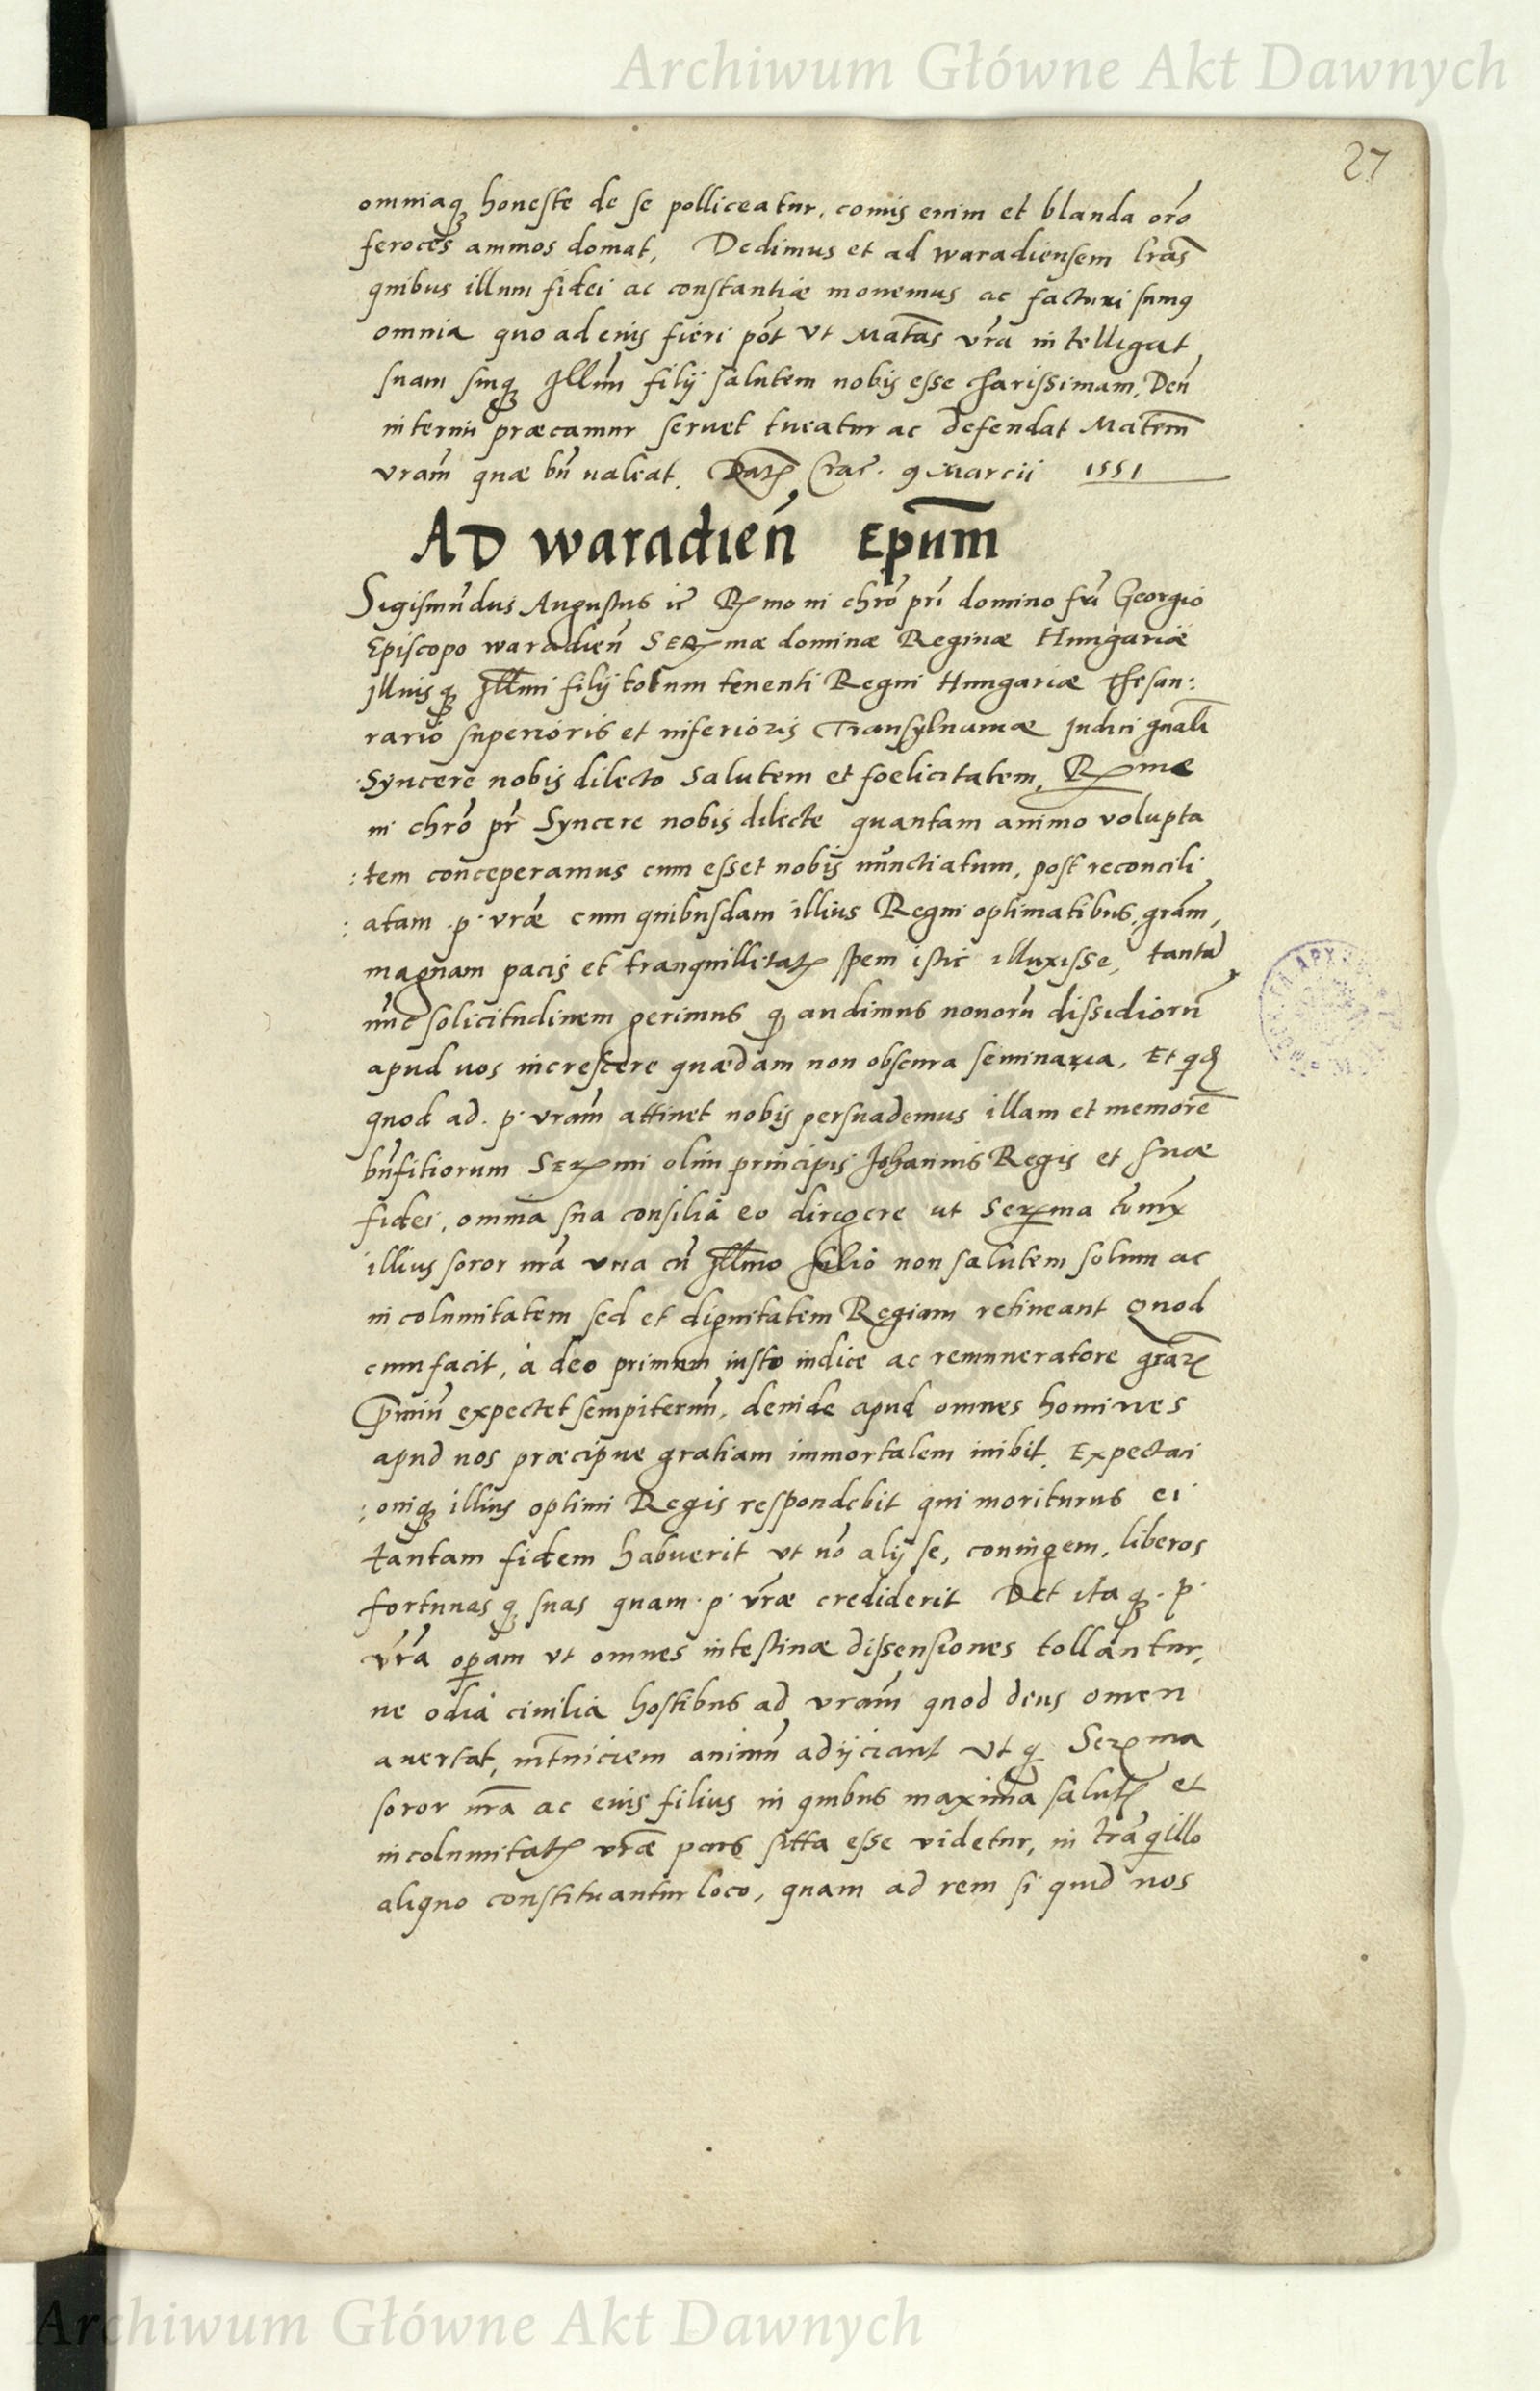 Archiwum Główne Akt Dawnych
27
omniaq₃ honeste de se polliceatur, comis enim et blanda orō
feroces animos domat, Dedimus et ad waradiensem lrãs
quibus illum fidei ac constantiæ monemus ac facturi sumꝯ
omnia quo ad eius fieri põt vt Matãs vrã intelligat,
suam suiq₃ Illm̄i filij salutem nobis esse charissimam, Deū
interim præcamur seruet tueatur ac defendat Matem̄
vram̄ quæ bñ ualeat. Datꝫ Crac̄. 9 Marcii 1551
AD waradień Epum̄
Sigismūdus Augustus ic̄ Rmo in chrō pri domino fri Georgio
Episcopo waradień SERmæ dominæ Reginæ Hungariæ
Illiusq₃ Illmi filij locum tenenti Regni Hungariæ Thesau:
rario superioris et inferioris Transyluaniæ Iudici gnali
Syncere nobis dilecto salutem et foelicitatem, Rme
in chrō pr̄ Syncere nobis dilecte quantam animo volupta
:tem conceperamus cum esset nobis nūnctiatum, post reconcili
:atam .p. vræ cum quibusdam illius Regni optimatibus gram̄,
magnam pacis et tranquillitatꝫ spem istic illuxisse, tantā
nūc solicitudinem gerimus q₃ audimus nouorū dissidiorū
apud uos increscere quædam non obscura seminaria, Et qđ
quod ad .p. vram̄ attinet nobis persuademus illam et memorē
bn̄fitiorum SERmi olim principis Johannis Regis et suæ
fidei, omnia sua consilia eo dirigere ut Serma
illius soror nrã vna cū Illmo filio non salutem solum ac
incolumitatem sed et dignitatem Regiam retineant Quod
cum facit, a deo primum iusto iudice ac remuneratore
p̄miū expectet sempiternū, deinde apud omnes homines
apud nos præcipue gratiam immortalem inibit, Expectati
:oniq₃ illius optimi Regis respondebit qui moriturus ei
tantam fidem habuerit vt nō alij se, coniugem, liberos
fortunas q₃ suas quam .p. vræ crediderit Det itaq₃ .p.
vrã operam vt omnes intestinæ dissensiones tollantur,
ne odia ciuilia hostibus ad vram̄ quod deus omen
auertat, animū adijciant vt q₃ Serma
soror nrã ac eius filius in quibus maxima salutꝫ et
incolumitatꝫ vræ pars sitta esse videtur, in trãquillo
aliquo constituantur loco, quam ad rem si quid nos
Archiwum Główne Akt Dawnych